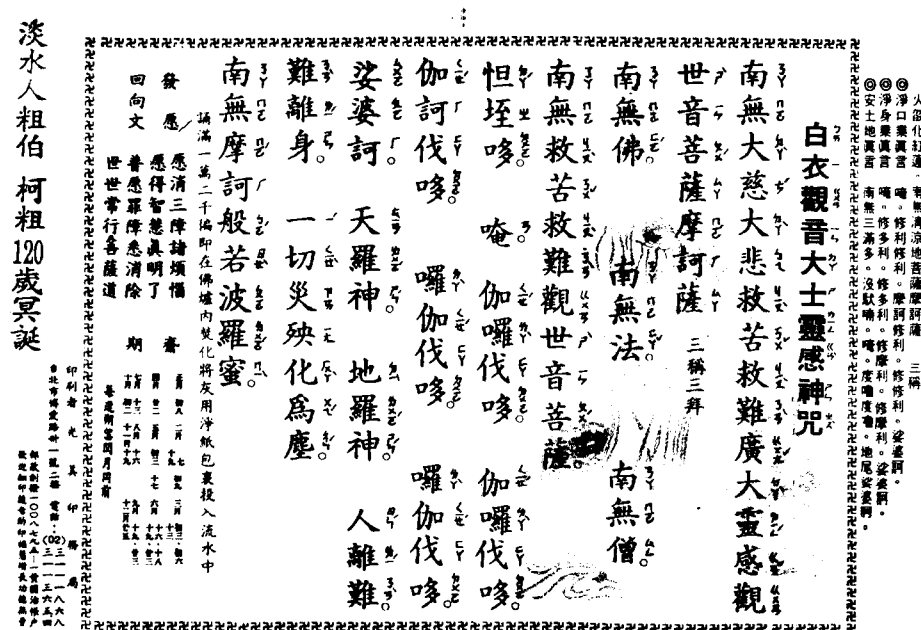 火燄化紅蓮。南無清涼地菩薩摩訶薩 三稱
◎淨口業真言 唵。修利修利。摩訶修利。修修利。娑婆訶。
◎淨身業真言 唵。修多利。修多利。修摩利。修摩利。娑婆訶。
◎安土地真言 南無三滿多。沒馱喃。唵。度嚕度嚕。地尾娑婆訶。
白衣觀音大士靈感神咒
南無大慈大悲救苦救難廣大靈感觀
世音菩薩摩訶薩 三稱三拜
南無佛。 南無法 南無僧
南無救苦救難觀世音菩薩。
怛垤哆。 唵 伽囉伐哆。 伽囉伐哆。
伽訶伐哆。 囉伽伐哆。 囉伽伐哆。
娑婆訶。 天羅神 地羅神。 人離難。
難離身。 一切災殃化為塵。
南無摩訶般若波羅蜜。
誦滿一萬二千遍即在佛爐內焚化將灰用淨紙包裹投入流水中
發願 願消三障諸煩惱
願得智慧真明了
回向文 普願罪障悉消除
世世常行菩薩道
齋期
每逢朔望閏月同前
印刷者 光其印務局
淡水人粗伯 柯粗120歲冥誕